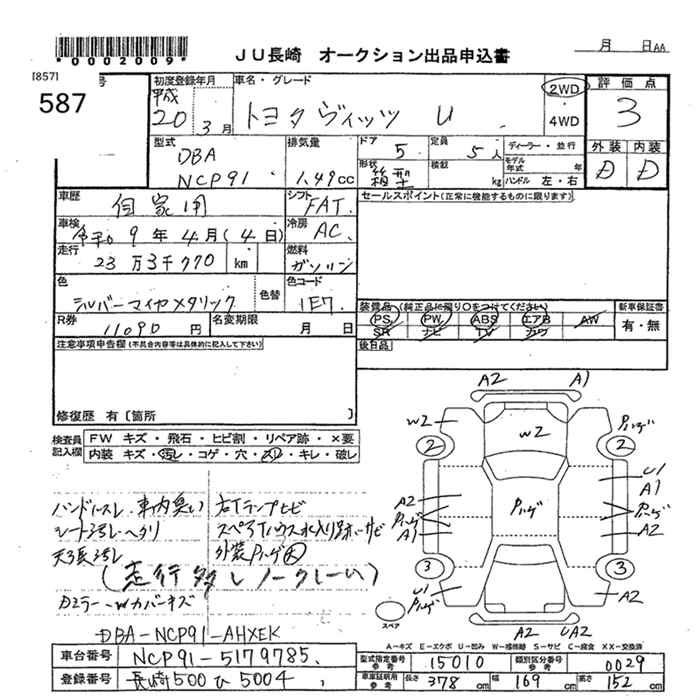 *0002009*
JU長崎 オークション出品申込書
月 日AA
[857]
号
587
初度登録年月
平成
20 3月
車名・グレード
トヨタ ヴィッツ U
2WD
4WD
評価点
3
型式
DBA
NCP91
排気量
1.49cc
ドア
5
定員
5人
ディーラー・並行
形状
箱型
積載
kg
モデル年式
年
ハンドル 左・右
外装 内装
D D
車歴
自家用
シフト
FAT
セールスポイント(正常に機能するものに限ります)
車検
令和 9年 4月(4日)
冷房
AC
走行
23万3千770 km
燃料
ガソリン
色
シルバーマイカメタリック
色替
色コード
1E7
装備品(純正品に限り○をつけてください)
PS PW ABS エアB AW
SR ナビ TV カワ
新車保証書
有・無
R券
11090円
名変期限
月 日
後日品
注意事項申告欄(不具合内容等は具体的に記入して下さい)
修復歴 有〔箇所 〕
検査員
記入欄
FW キズ・飛石・ヒビ割・リペア跡・×要
内装 キズ・汚レ・コゲ・穴・スリ・キレ・破レ
A2 A1
W2 W2 Pハゲ
2 2
U1
A1
A2 Pハゲ
Pハゲ Pハゲ
A1 A2
3 3
U1
Pハゲ
A2
A2 U2
スペア
ハンドルスレ 車内臭い
シート汚レ・ヘタリ
天張汚レ
右Tランプヒビ
スペアTハウス水入り跡・サビ
外装Pハゲ大
(走行多しノークレーム)
Dミラー・Wカバーキズ
DBA-NCP91-AHXEK
A-キズ E-エクボ U-凹み W-補修跡 S-サビ C-腐食 XX-交換済
車台番号 NCP91-5179785
型式指定番号
参考
15010
類別区分番号
参考
0029
登録番号 長崎500ひ5004
車庫証明用
参考
長さ 378cm 幅 169cm 高さ 152cm